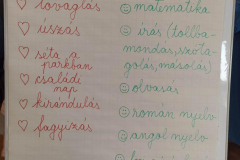 ♡ lovaglás
♡ úszás
♡ séta a
parkban
♡ családi
nap
♡ kirándulás
♡ fagyizás
☺ matematika
☺ írás (tollba-
mondás, szóta-
golás, másolás)
☺ olvasás
☺ román nyelv
☺ angol nyelv